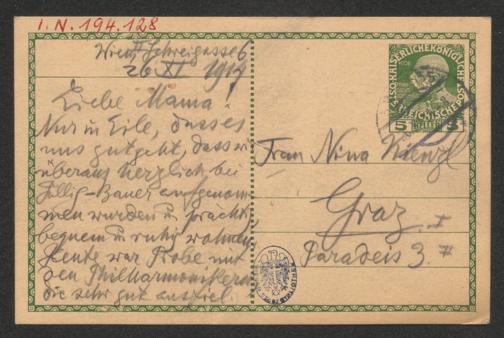 I. N. 194.128
Wien Schreigasse 6
26 XI 1917
Liebe Mama!
Nur in Eile, dass es
uns gutgeht, dass wir
überaus herzlich bei
Füllig-Bauer aufgenom-
men wurden u. prachtv.
bequem u ruhig wohnen.
Heute war Probe mit
den Philharmonikern
die sehr gut ausfiel.
KAISERLICHEKÖNIGLICHE
5 5
Frau Nina Kienzl
Graz I
Paradeis 3. II